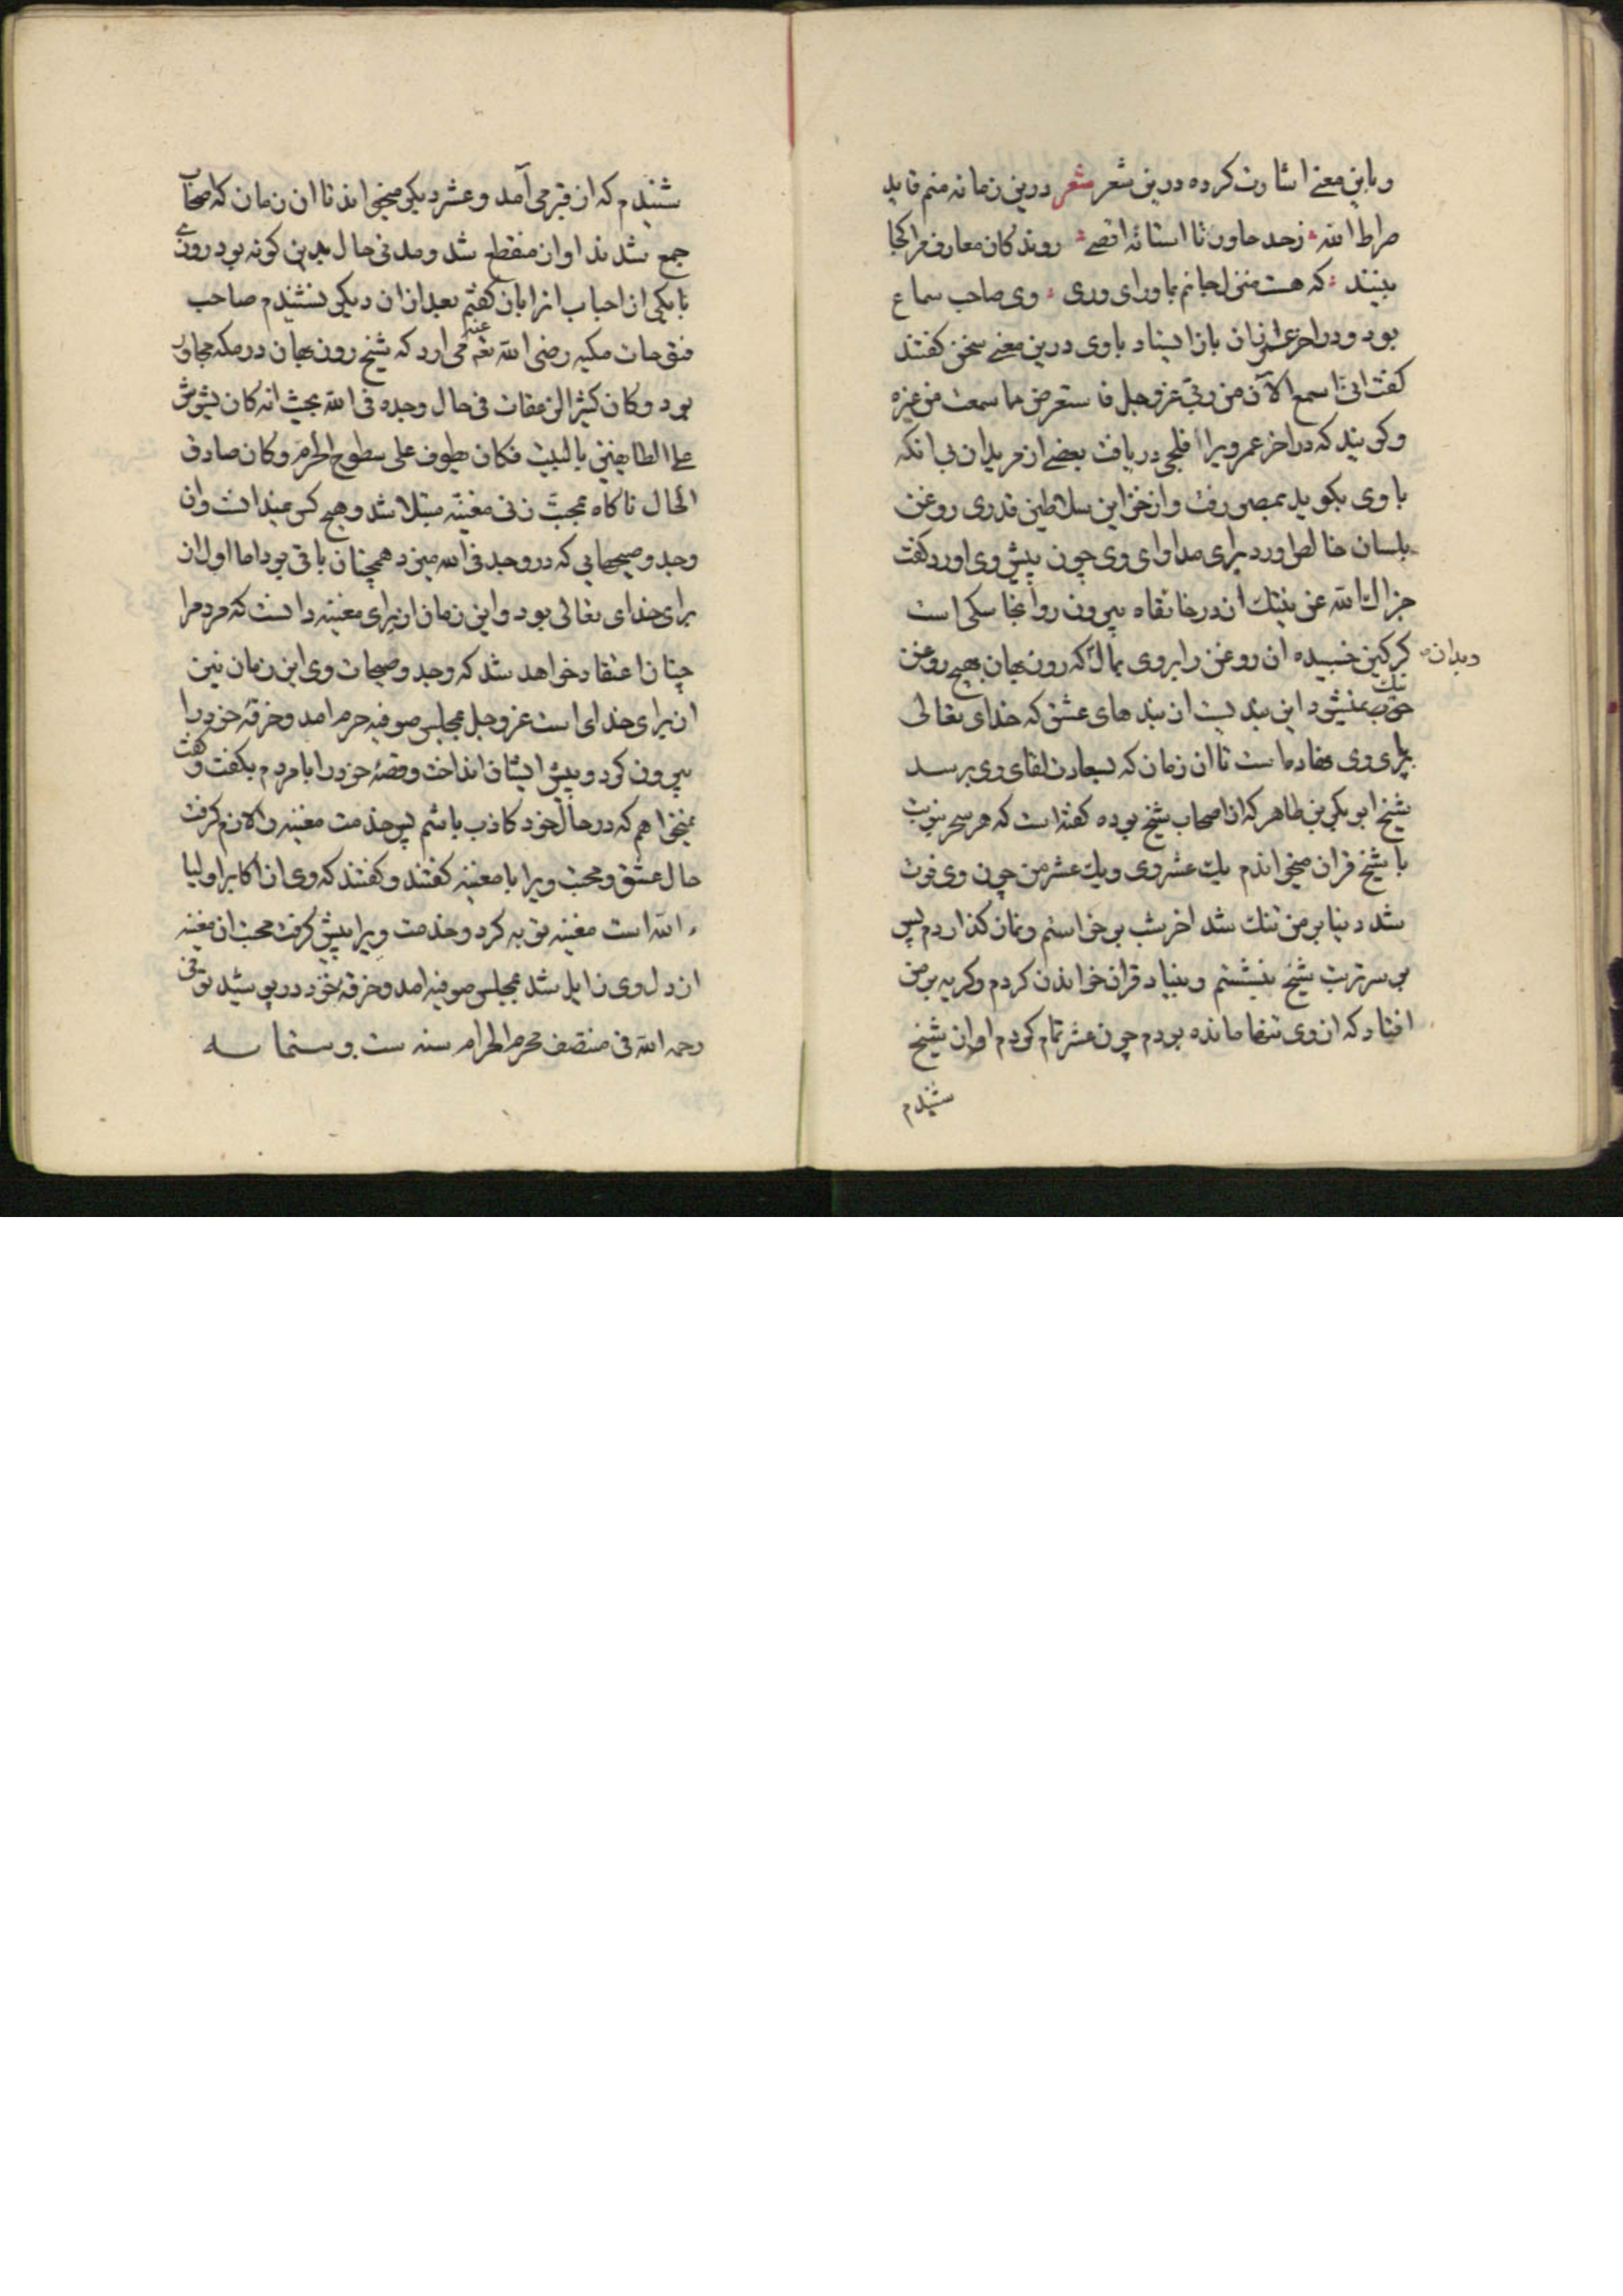 و باین معنی اشارت کرده درین شعر شعر درین زمانه منم قاید
صراط الله ز حد خاور تا استانه اقصی روندکان معارف مرا کجا
بینند که هست منزل جانم بماورای وری وی صاحب سماع
بود و در اخر عمر از ان باز ایستاد با وی درین معنی سخن کفتند
کفت انی اسمع الآن من ربی عز وجل فاستعرض ما سمعت من غیره
و کویند که در اخر عمر ویرا فلجی دریافت بعضی از مریدان بی انکه
با وی بکوید بمصر رفت و از خزاین سلاطین قدری روغن
بلسان خالص اورد برای مداوای وی چون پیش وی اورد کفت
جزاك الله عن نیتك از در خانقاه بیرون رو انجا سکی است
کرکین خسبیده ان روغن را بروی بمال و بدان که روزبهان بهیچ روغن
نیك نمیشود این بندیست از بندهای عشق که خدای تعالی
برپای وی نهاده است تا ان زمان که بسعادت لقای وی برسد
شیخ ابو بکر بن طاهر که از اصحاب شیخ بوده کفته است که هر سحر بنوبت
با شیخ قران میخواندم یك عشر وی و یك عشر من چون وی فوت
شد دنیا بر من تنك شد اخر شب برخواستم و نماز کذاردم پس
بر سر تربت شیخ بنشستم و بنیاد قران خواندن کردم و کریه بر من
افتاد که از وی تنها مانده بودم چون عشر تمام کردم اواز شیخ
شنیدم
شنیدم که از قبر می آمد و عشر دیکر میخواند تا ان زمان که اصحاب
جمع شدند اواز منقطع شد و مدتی حال بدین کونه بود روزی
با یکی از احباب ان را باز کفتم بعد از ان دیکر نشنیدم صاحب
فتوحات مکیه رضی الله تعه عنه می ارد که شیخ روزبهان در مکه مجاور
بود و کان کثیر الزعقات فی حال وجده فی الله بحیث انه کان یشوش
علی الطایفین بالبیت فکان یطوف علی سطوح الحرم و کان صادق
الحال ناکاه بمحبت زنی مغنیه مبتلا شد و هیچ کس نمیدانست و ان
وجد و صیحهایی که در وجد فی الله میزد همچنان باقی بود اما اول از
برای خدای تعالی بود و این زمان از برای مغنیه دانست که مردم را
چنان اعتقاد خواهد شد که وجد و صیحات وی این زمان نیز
از برای خدای است عز وجل بمجلس صوفیه حرم امد و خرقه خود را
بیرون کرد و پیش ایشان انداخت و قصه خود را با مردم بکفت و کفت
نمیخواهم که در حال خود کاذب باشم پس خدمت مغنیه را لازم کرفت
حال عشق و محبت ویرا با مغنیه کفتند و کفتند که وی از اکابر اولیا
الله است مغنیه توبه کرد و خدمت ویرا پیش کرفت محبت ان مغنیه
از دل وی زایل شد بمجلس صوفیه امد و خرقه خود در پوشید توفی
رحمه الله فی منتصف محرم الحرام سنه ست و ستمایه